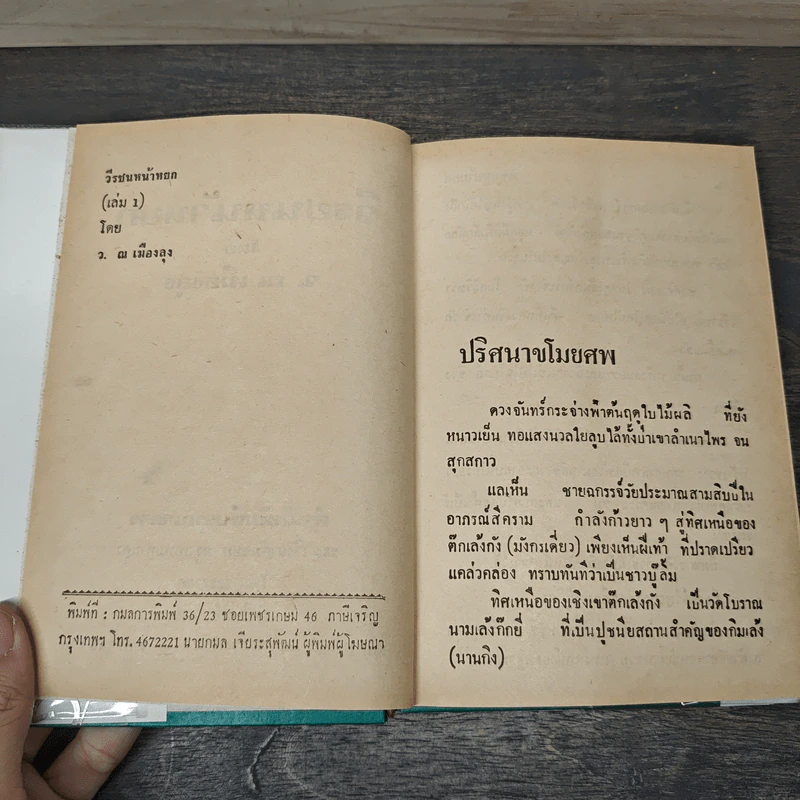 วีรชนหน้าหยก
(เล่ม 1)
โดย
ว. ณ เมืองลุง
พิมพ์ที่ : กมลการพิมพ์ 36/23 ซอยเพชรเกษม 46 ภาษีเจริญ
กรุงเทพฯ โทร. 4672221 นายกมล เจียระสุพัฒน์ ผู้พิมพ์ผู้โฆษณา
ปริศนาขโมยศพ
ดวงจันทร์กระจ่างฟ้าต้นฤดูใบไม้ผลิ ที่ยัง
หนาวเย็น ทอแสงนวลใยลูบไล้ทั้งป่าเขาลำเนาไพร จน
สุกสกาว
แลเห็น ชายฉกรรจ์วัยประมาณสามสิบปีใน
อาภรณ์สีคราม กำลังก้าวยาว ๆ สู่ทิศเหนือของ
ต๊กเล้งกัง (มังกรเดี่ยว) เพียงเห็นฝีเท้า ที่ปราดเปรียว
แคล่วคล่อง ทราบทันทีว่าเป็นชาวบู๊ลิ้ม
ทิศเหนือของเชิงเขาต๊กเล้งกัง เป็นวัดโบราณ
นามเล้งก๊กยี่ ที่เป็นปูชนียสถานสำคัญของกิมเล้ง
(นานกิง)